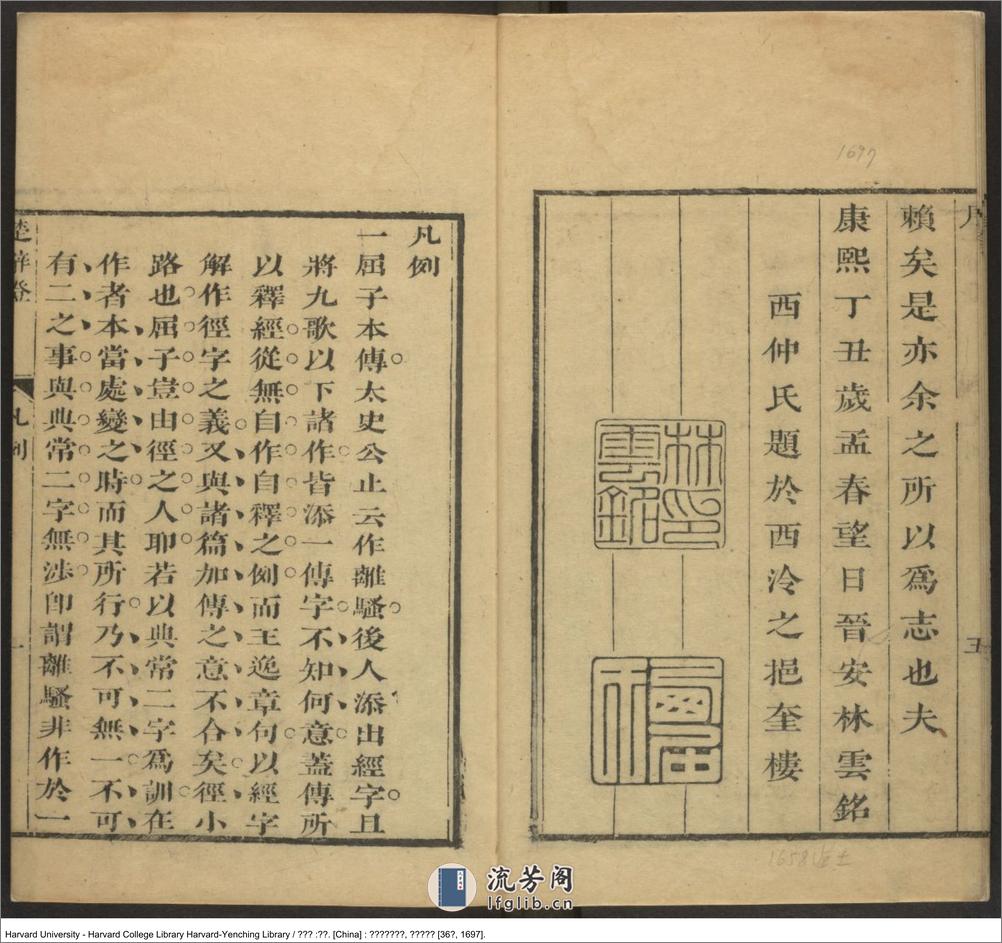 賴矣是亦余之所以爲志也夫
康熙丁丑歲孟春望日晉安林雲銘
西仲氏題於西泠之挹奎樓
林雲銘印
五
1697
凡例
一屈子本傳太史公止云作離騷後人添出經字且
將九歌以下諸作皆添一傳字不知何意蓋傳所
以釋經從無自作自釋之例而王逸章句以經字
解作徑字之義又與諸篇加傳之意不合矣徑小
路也屈子豈由徑之人耶若以典常二字爲訓在
作者本當處變之時而其所行乃不可無一不可
有二之事與典常二字無涉卽謂離騷非作於一
楚辭卷
凡例
一
流芳阁
lfglib.cn
Harvard University - Harvard College Library Harvard-Yenching Library / ??? :??. [China] : ???????, ????? [36?, 1697].